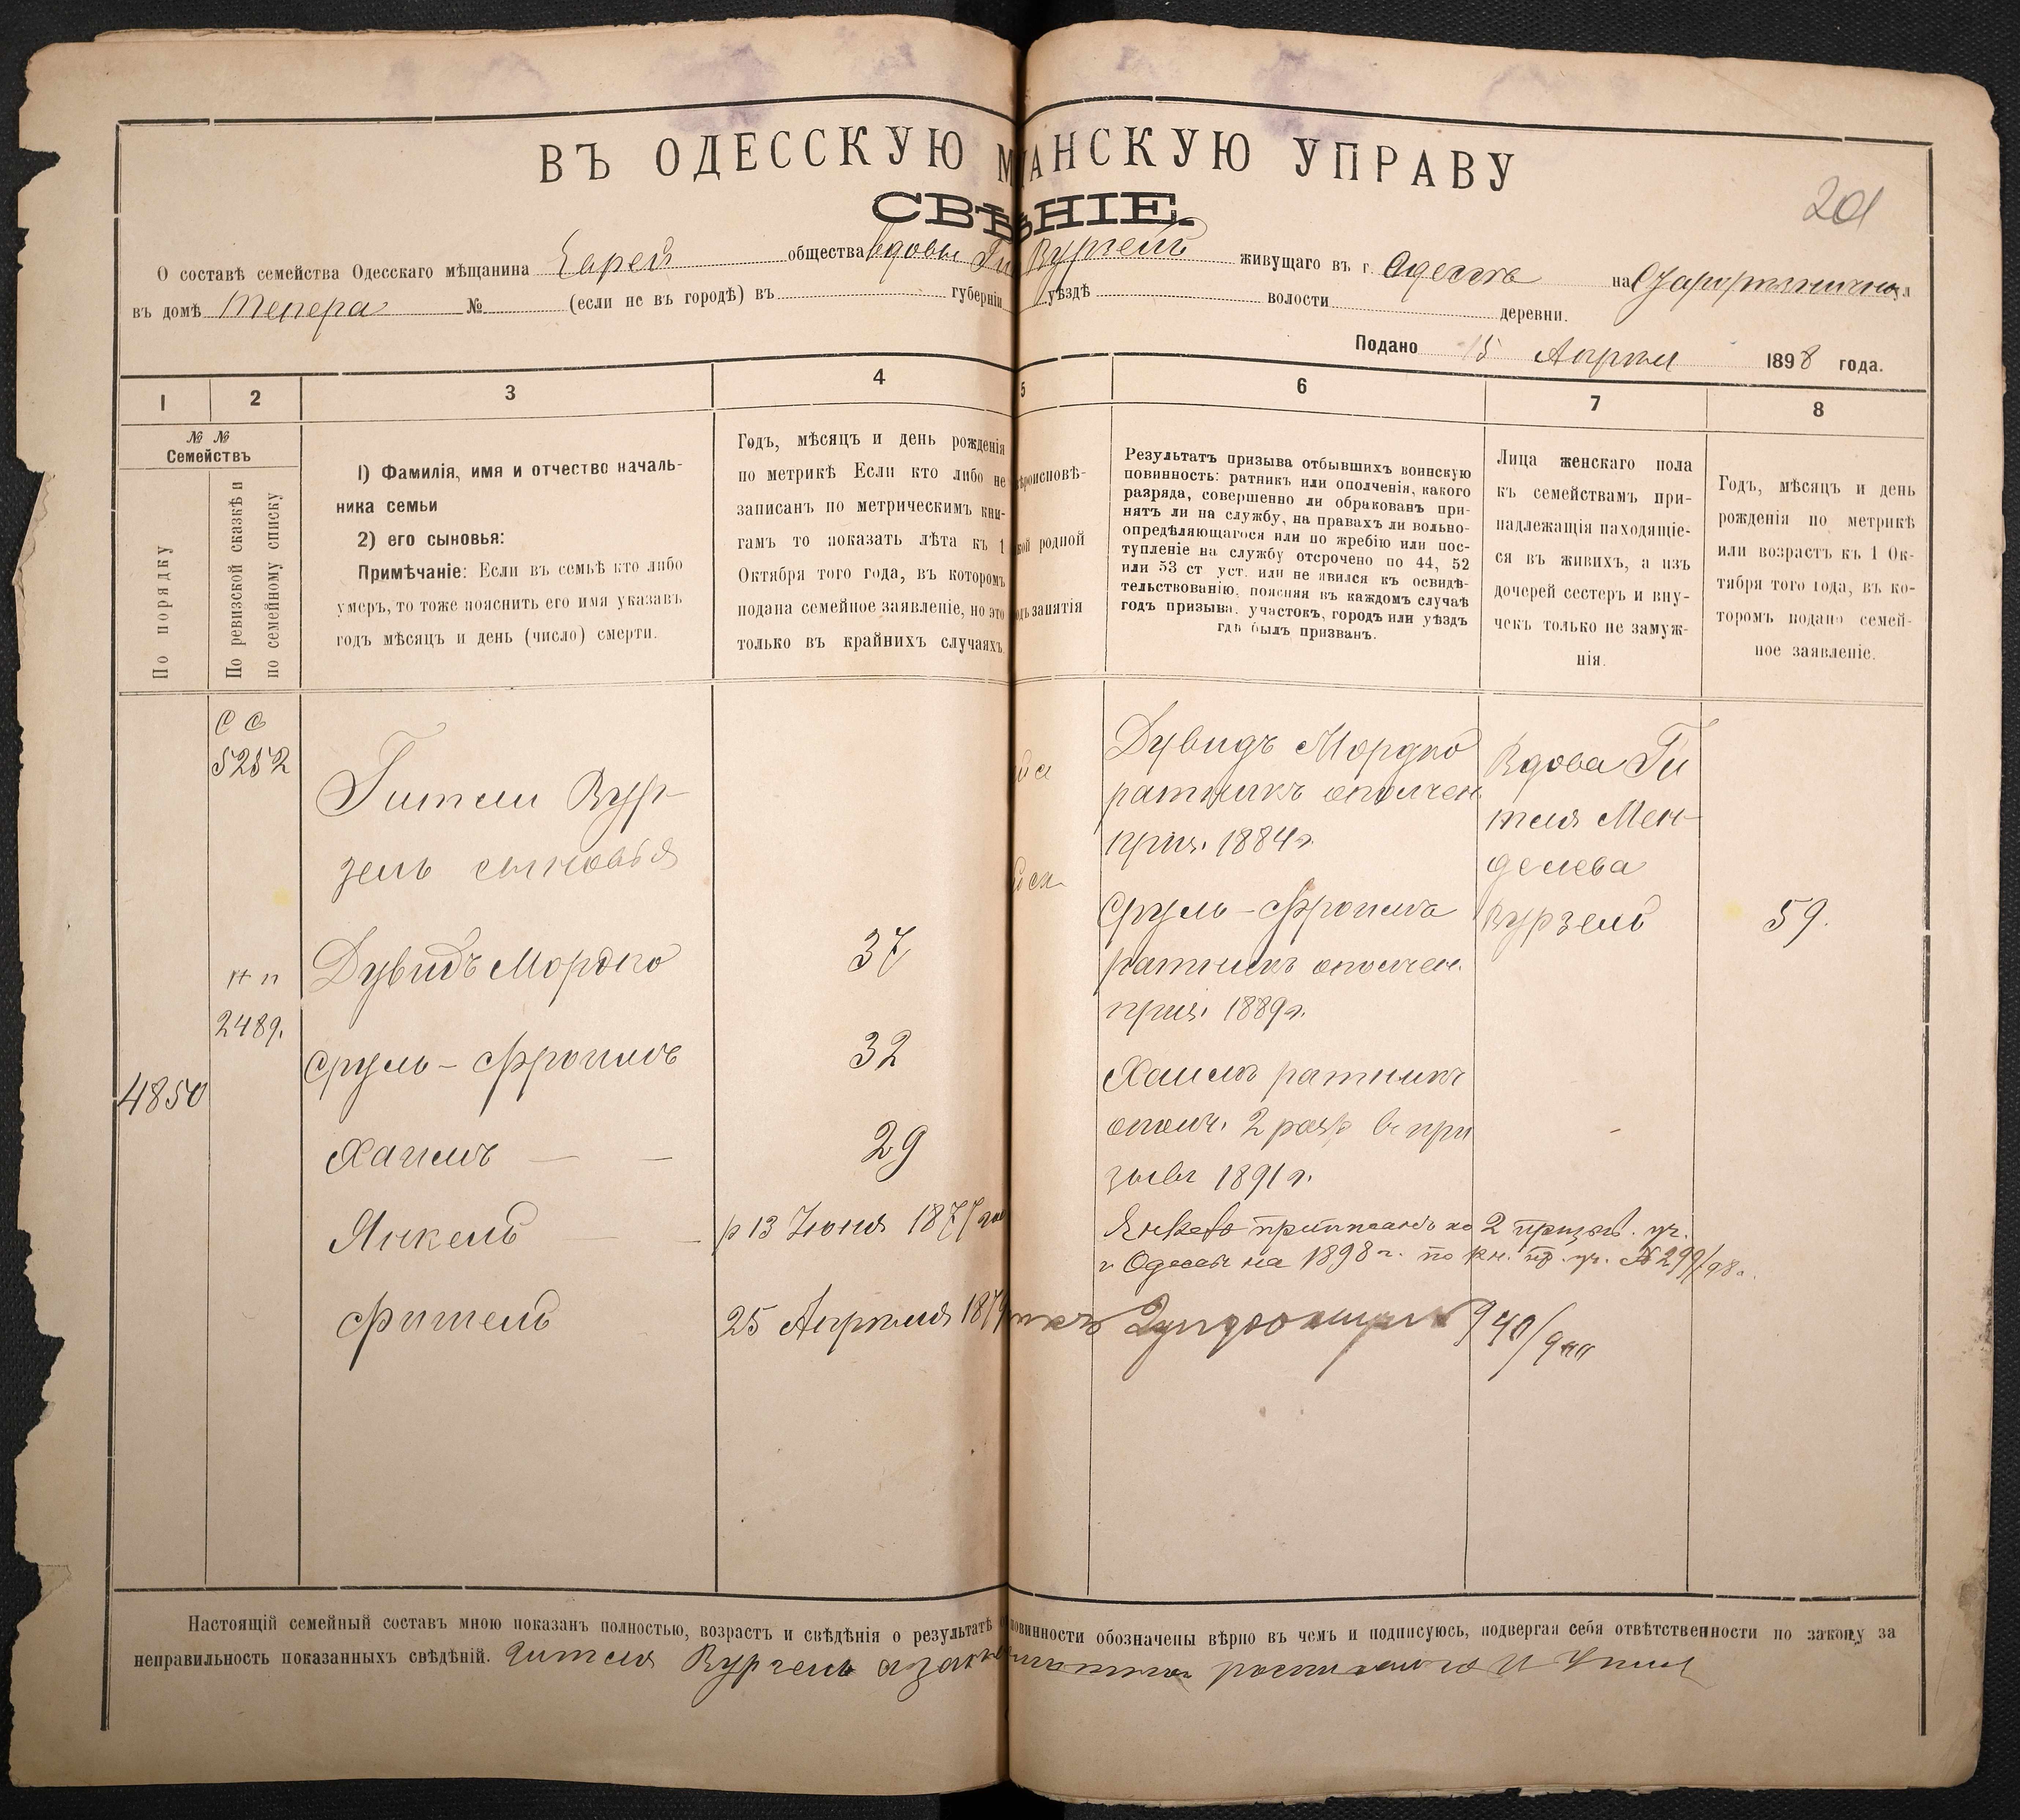 ВЪ ОДЕССКУЮ М АНСКУЮ УПРАВУ
СВѢ НІЕ.
201
О составѣ семейства Одесскаго мѣщанина Еврей общества вдовы Ги Вурзель живущаго въ г. Одессѣ на ул
въ домѣ Тепера № (если не въ городѣ) въ губерніи уѣздѣ волости деревни.
Подано 15 Апрѣля 1898 года.
1 2 3 4 5 6 7 8
№ №
Семействъ
По порядку
По ревизской сказкѣ и
по семейному списку
1) Фамилія, имя и отчество началь-
ника семьи
2) его сыновья:
Примѣчаніе: Если въ семьѣ кто либо
умеръ, то тоже пояснить его имя указавъ
годъ мѣсяцъ и день (число) смерти.
Годъ, мѣсяцъ и день рожденія
по метрикѣ Если кто либо не
записанъ по метрическимъ кни-
гамъ то показать лѣта къ 1
Октября того года, въ которомъ
подана семейное заявленіе, но это
только въ крайнихъ случаяхъ.
ѣроисповѣ-
кой родной
одъ занятія
Результатъ призыва отбывшихъ воинскую
повинность: ратникъ или ополченія, какого
разряда, совершенно ли обракованъ при-
нятъ ли на службу, на правахъ ли вольно-
опредѣляющагося или по жребію или пос-
тупленіе на службу отсрочено по 44, 52
или 53 ст уст. или не явился къ освидѣ-
тельствованію, поясняя въ каждомъ случаѣ
годъ призыва, участокъ, городъ или уѣздъ
гдѣ былъ призванъ.
Лица женскаго пола
къ семействамъ при-
надлежащія находящіе-
ся въ живихъ, а изъ
дочерей сестеръ и вну-
чекъ только не замуж-
нія.
Годъ, мѣсяцъ и день
рожденія по метрикѣ
или возрастъ къ 1 Ок-
тября того года, въ ко-
торомъ подано семей-
ное заявленіе.
С С
5252
н п
2489.
4850
Гители Вур-
зель сыновья
Дувидъ Мордко
Сруль-Фроимъ
Хаимъ — —
Янкель — —
Фитель
37
32
29
р 13 Іюня 1877 го
25 Апрѣля 187
Дувидъ Мордко
ратникъ ополчен.
приз. 1884 г.
Сруль-Фроимъ
ратникъ ополчен.
приз. 1889 г.
Хаимъ ратникъ
ополч. 2 разр въ при
зывѣ 1891 г.
Янкель приписанъ ко 2 призыв. уч.
г Одессы на 1898 г. по кн. пр. уч. № 299/98 г.
940/900
Вдова Ги
теля Мен-
делева
Вурзель
59.
Настоящій семейный составъ мною показанъ полностью, возрастъ и свѣдѣнія о результатѣ повинности обозначены вѣрно въ чемъ и подписуюсь, подвергая себя отвѣтственности по закону за
неправильность показанныхъ свѣдѣній. Гителя Вурзель а за